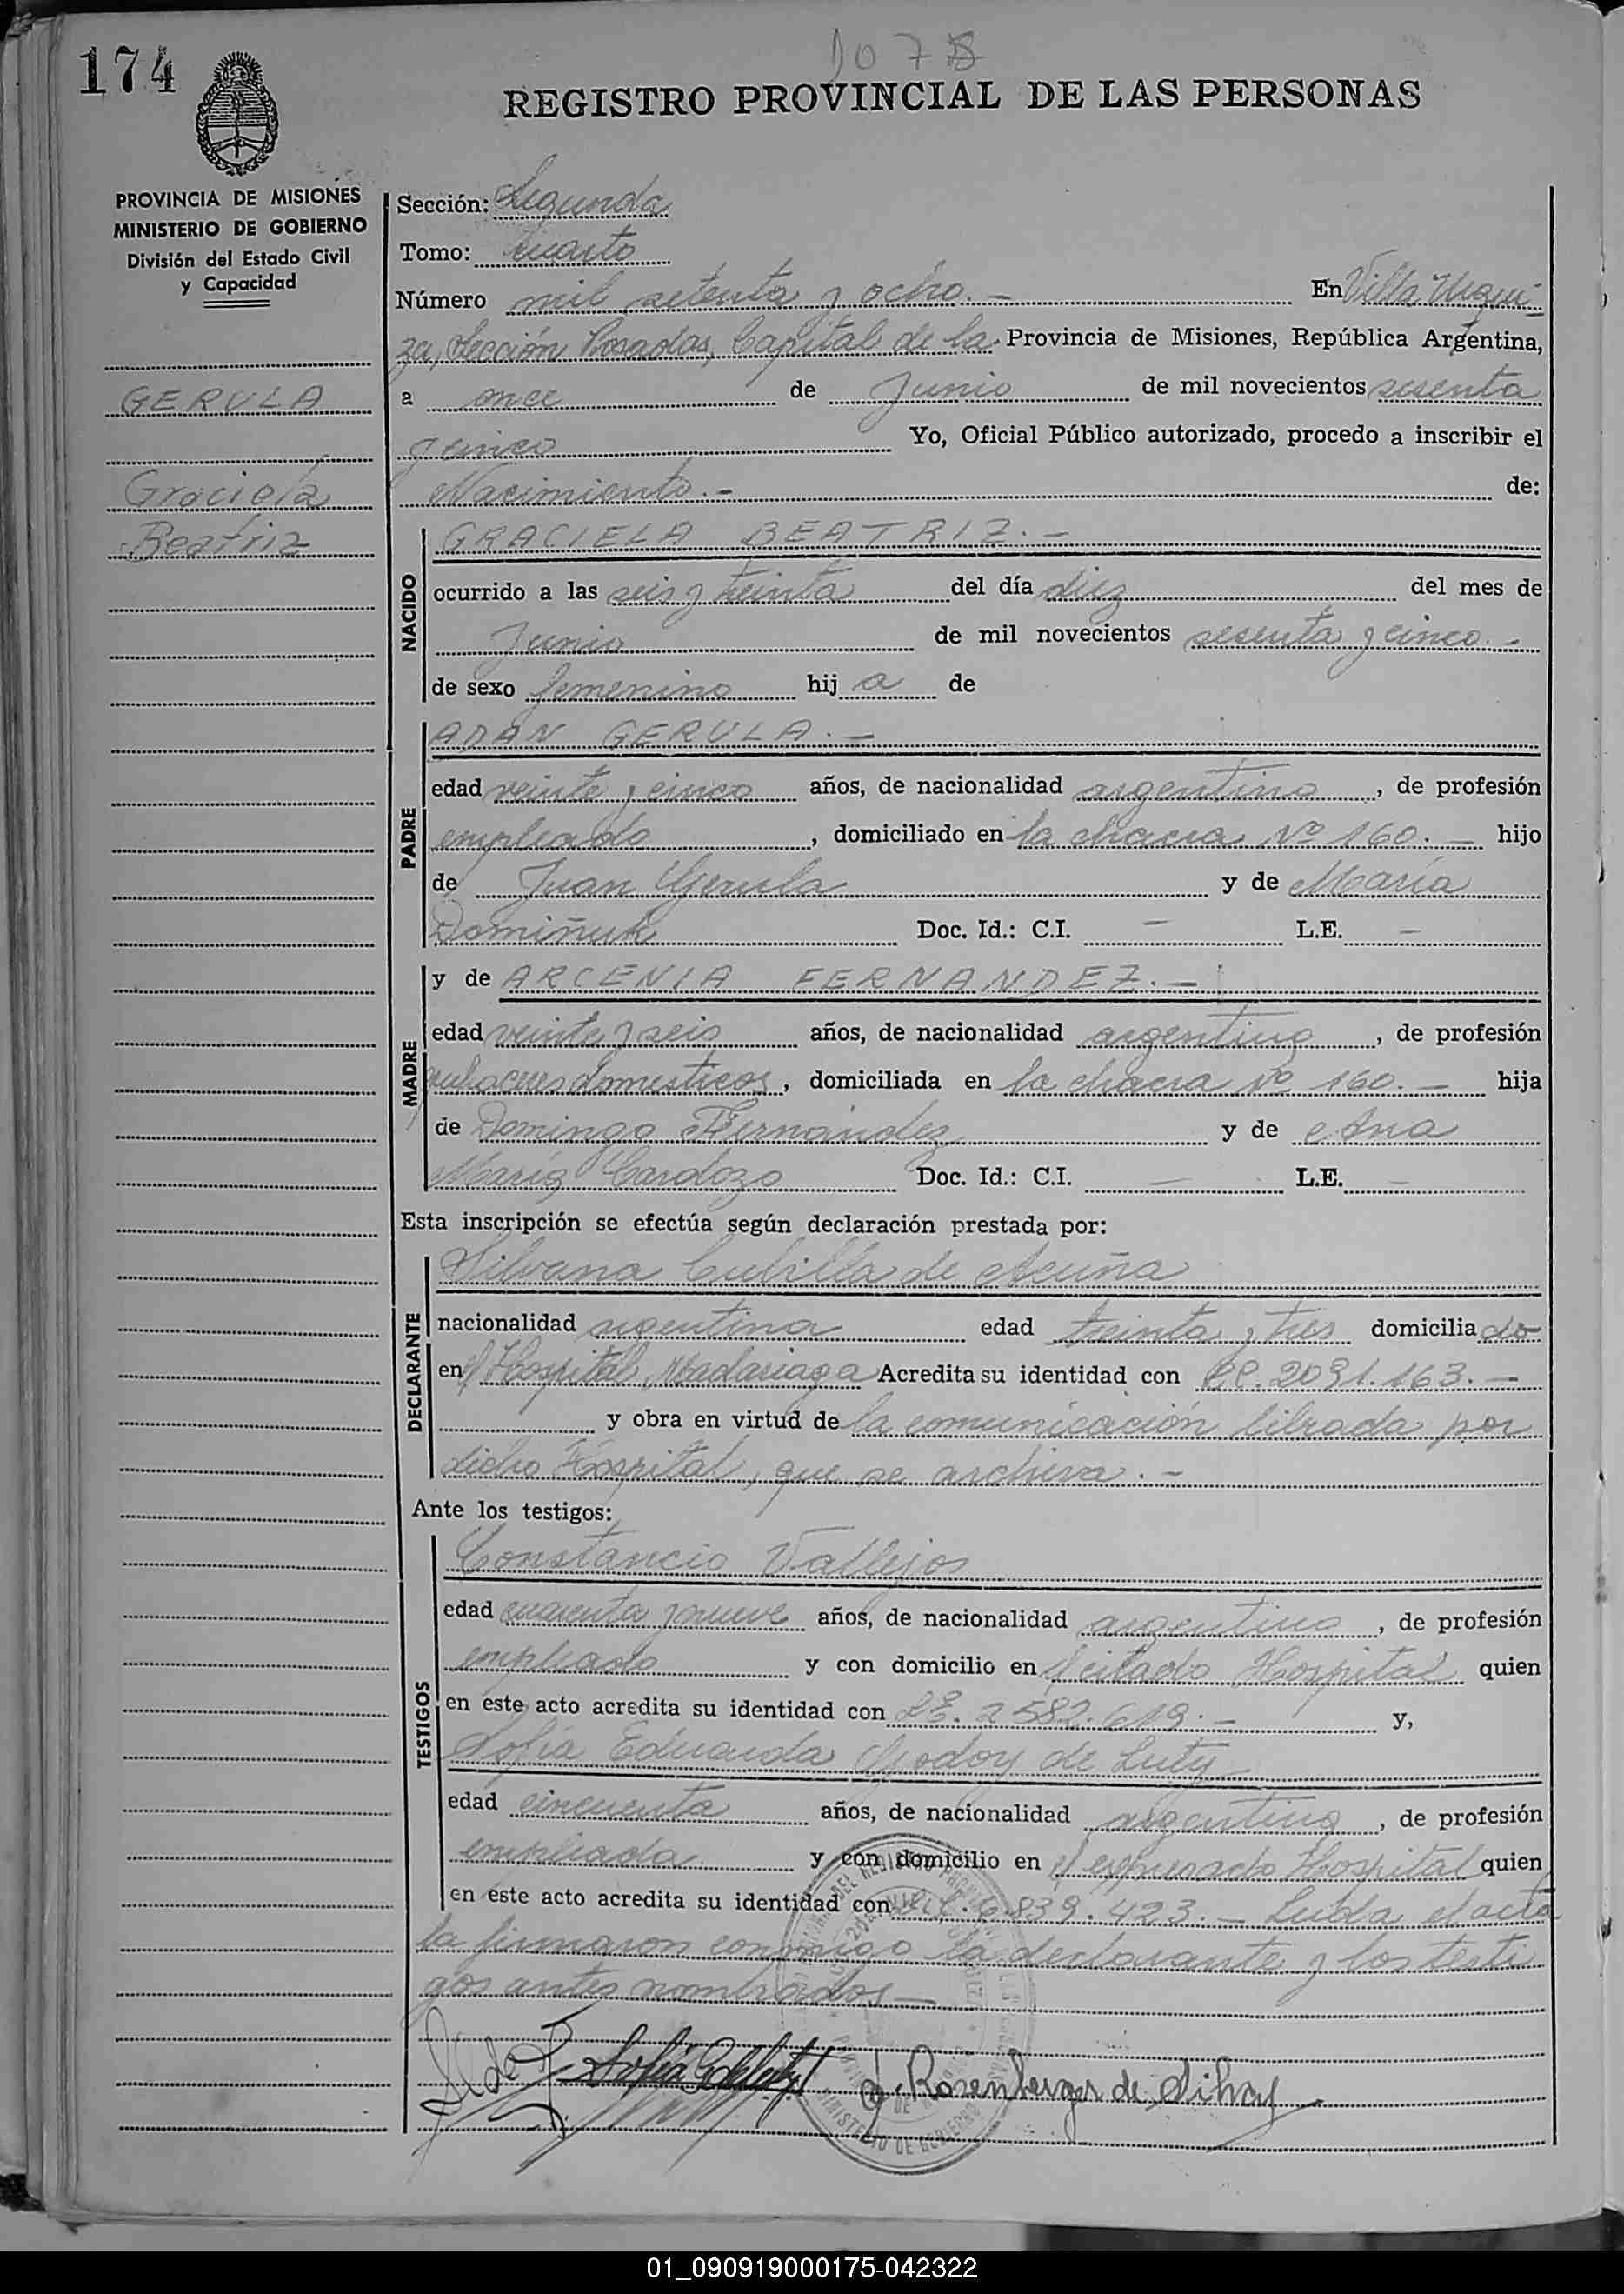 174
1078
REGISTRO PROVINCIAL DE LAS PERSONAS
PROVINCIA DE MISIONES
MINISTERIO DE GOBIERNO
División del Estado Civil
y Capacidad
GERULA
Graciela
Beatriz
Sección: Segunda
Tomo: Cuarto
Número mil setenta y ocho.- En Villa Urqui-
za, Sección Posadas, Capital de la Provincia de Misiones, República Argentina,
a once de Junio de mil novecientos sesenta
y cinco Yo, Oficial Público autorizado, procedo a inscribir el
Nacimiento.- de:
NACIDO
GRACIELA BEATRIZ.-
ocurrido a las seis y treinta del día diez del mes de
Junio de mil novecientos sesenta y cinco.-
de sexo femenino hija de
PADRE
ADAN GERULA.-
edad veinte y cinco años, de nacionalidad argentino, de profesión
empleado, domiciliado en la chacra Nº 160.- hijo
de Juan Gerula y de María
Domiñuk Doc. Id.: C.I. - L.E. -
MADRE
y de ARCENIA FERNANDEZ.-
edad veinte y seis años, de nacionalidad argentina, de profesión
quehaceres domesticos, domiciliada en la chacra Nº 160.- hija
de Domingo Fernández y de Ana
María Cardozo Doc. Id.: C.I. - L.E. -
Esta inscripción se efectúa según declaración prestada por:
DECLARANTE
Silvana Cubilla de Acuña
nacionalidad argentina edad treinta y tres domiciliado
en el Hospital Madariaga Acredita su identidad con 2091.163.-
y obra en virtud de la comunicación librada por
dicho Hospital, que se archiva.-
Ante los testigos:
TESTIGOS
Constancio Vallejos
edad cuarenta y nueve años, de nacionalidad argentino, de profesión
empleado y con domicilio en el citado Hospital quien
en este acto acredita su identidad con LE. 2582.619.- y,
Sofia Eduarda Godoy de Luty
edad cincuenta años, de nacionalidad argentina, de profesión
empleada y con domicilio en el expresado Hospital quien
en este acto acredita su identidad con 6.839.423.- Leida el acta
la firmaron conmigo la declarante y los testi
gos antes nombrados-
Rosenberger de
MINISTERIO DE GOBIERNO
01_090919000175-042322